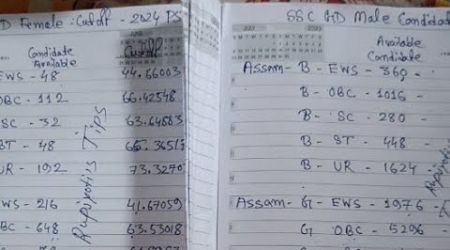 D Female : Cutoff - 2024 PS
Candidate Available
Cutoff
EWS - 48 44.66003
OBC - 112 66.42548
SC - 32 63.64883
ST - 48
UR - 192 73.3270
EWS - 216 41.67059
OBC - 648 63.53018
Rupjyotiis Tips
SSC GD Male Candidat
Available
Candidate
Assam - B - EWS - 360 -
B - OBC - 1016 -
B - SC - 280 -
B - ST - 448 -
B - UR - 1624
Assam - G - EWS - 1976 -
G OBC - 5296 -